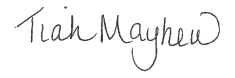 Tiah Mayhew